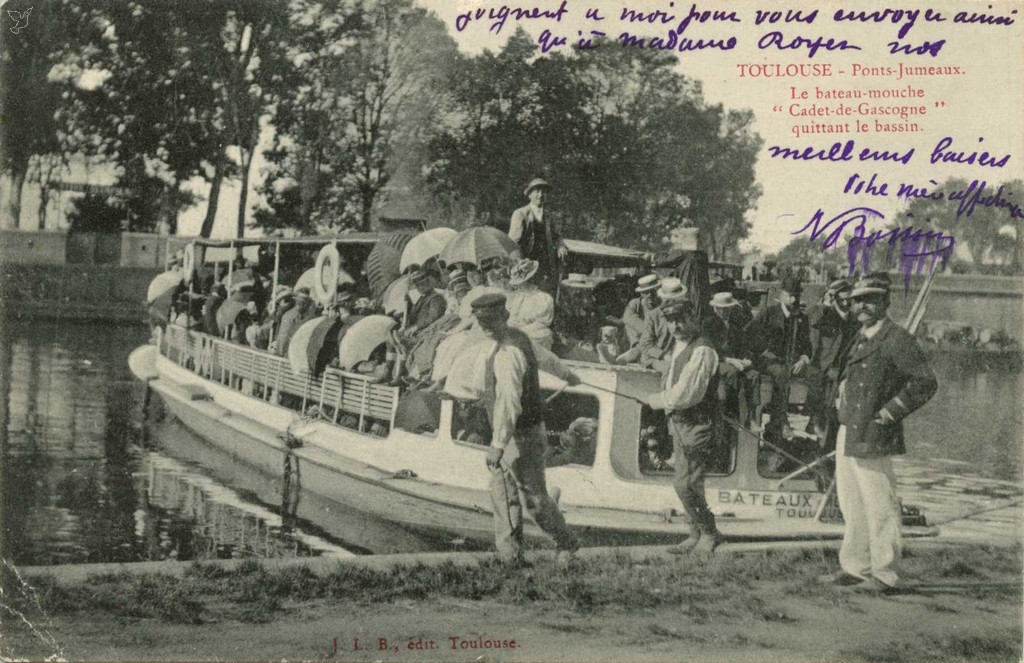 joignent a moi pour vous envoyer ainsi
qu'à madame Royer nos
TOULOUSE - Ponts-Jumeaux.
Le bateau-mouche
“ Cadet-de-Gascogne ”
quittant le bassin.
meilleurs baisers
Votre mère affection
BATEAUX
TOULOUSE
J. L. B., édit. Toulouse.